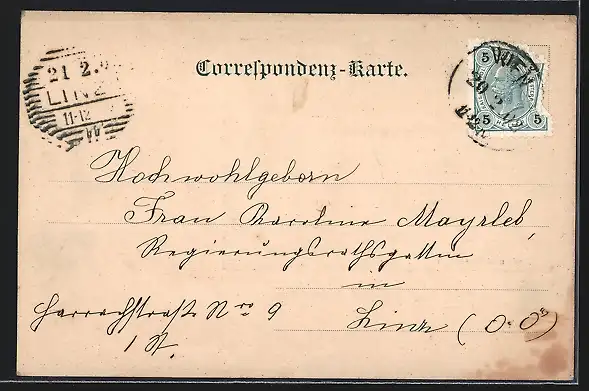 Correspondenz-Karte.
21 2.
LINZ
11-12
5
5 5
WIEN
20 2
Hochwohlgeborn
Frau Karoline Mayrleb,
Regierungsrathsgattin
in
Harrachstraße Nro 9
Linz (O.Ö)
1 St.